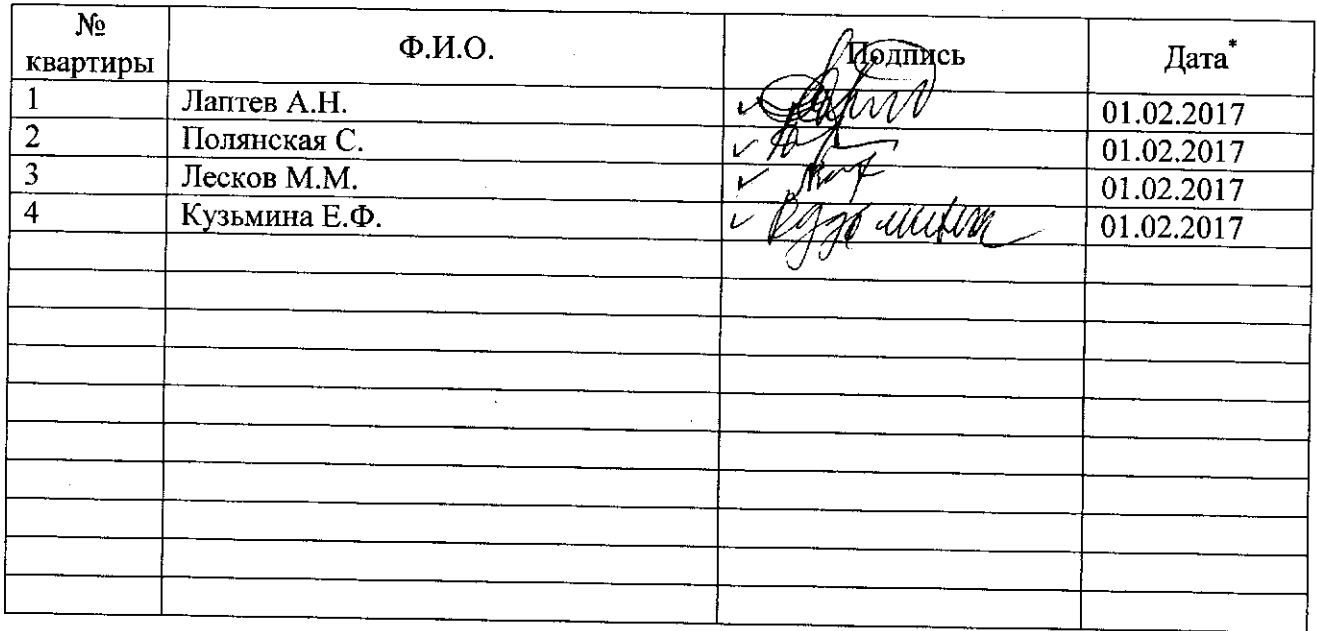 № квартиры Ф.И.О. Подпись Дата*
1 Лаптев А.Н. 01.02.2017
2 Полянская С. 01.02.2017
3 Лесков М.М. 01.02.2017
4 Кузьмина Е.Ф. Кузьмина 01.02.2017